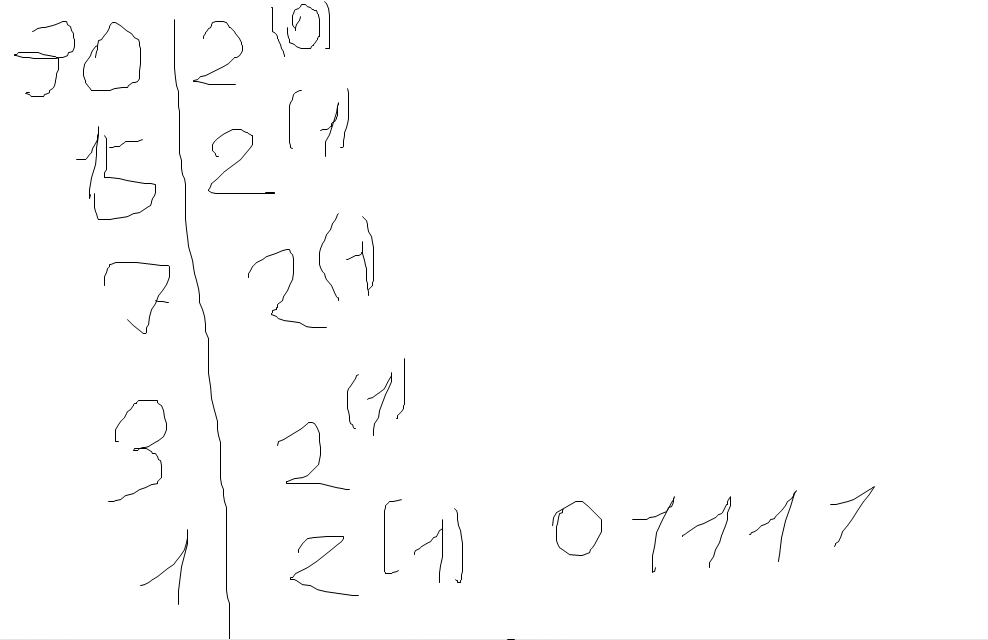 30 | 2 (0)
15 | 2 (1)
7 | 2 (1)
3 | 2 (1)
1 | 2 (1) 01111